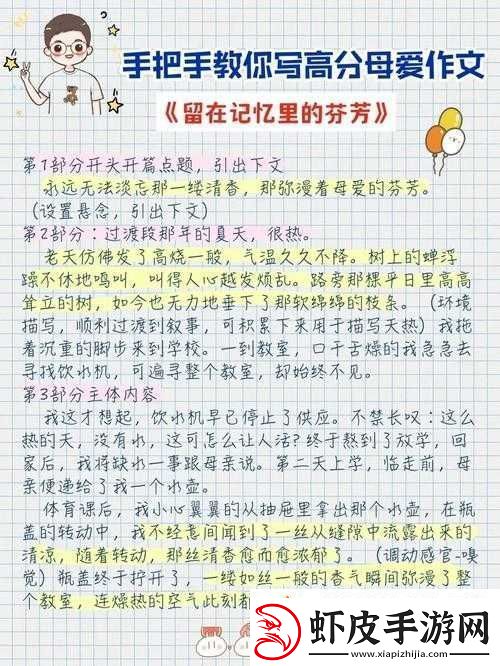 手把手教你写高分母爱作文
《留在记忆里的芬芳》
第1部分开头开篇点题，引出下文
永远无法淡忘那一缕清香，那弥漫着母爱的芬芳。
（设置悬念，引出下文）
第2部分：过渡段那年的夏天，很热。
老天仿佛发了高烧一般，气温久久不降。树上的蝉浮
躁不休地鸣叫，叫得人心越发烦乱。路旁那棵平日里高高
耸立的树，如今也无力地垂下了那软绵绵的枝条。（环境
描写，顺利过渡到叙事，可积累下来用于描写天热）我拖
着沉重的脚步来到学校。一到教室，口干舌燥的我急急去
寻找饮水机，可遍寻整个教室，却始终不见。
第3部分主体内容
我这才想起，饮水机早已停止了供应。不禁长叹：这么
热的天，没有水，这可怎么让人活？终于熬到了放学，回
家后，我将缺水一事跟母亲说。第二天上学，临走前，母
亲便递给了我一个水壶。
体育课后，我小心翼翼的从抽屉里拿出那个水壶，在瓶
盖的转动中，我不经意间闻到了一丝从缝隙中流露出来的
清凉，随着转动，那丝清香愈而愈浓郁了。（调动感官-嗅
觉）瓶盖终于拧开了，一缕如丝一般的香气瞬间弥漫了整
个教室，连燥热的空气此刻都
虾皮手游网
www.xiapizhijia.com